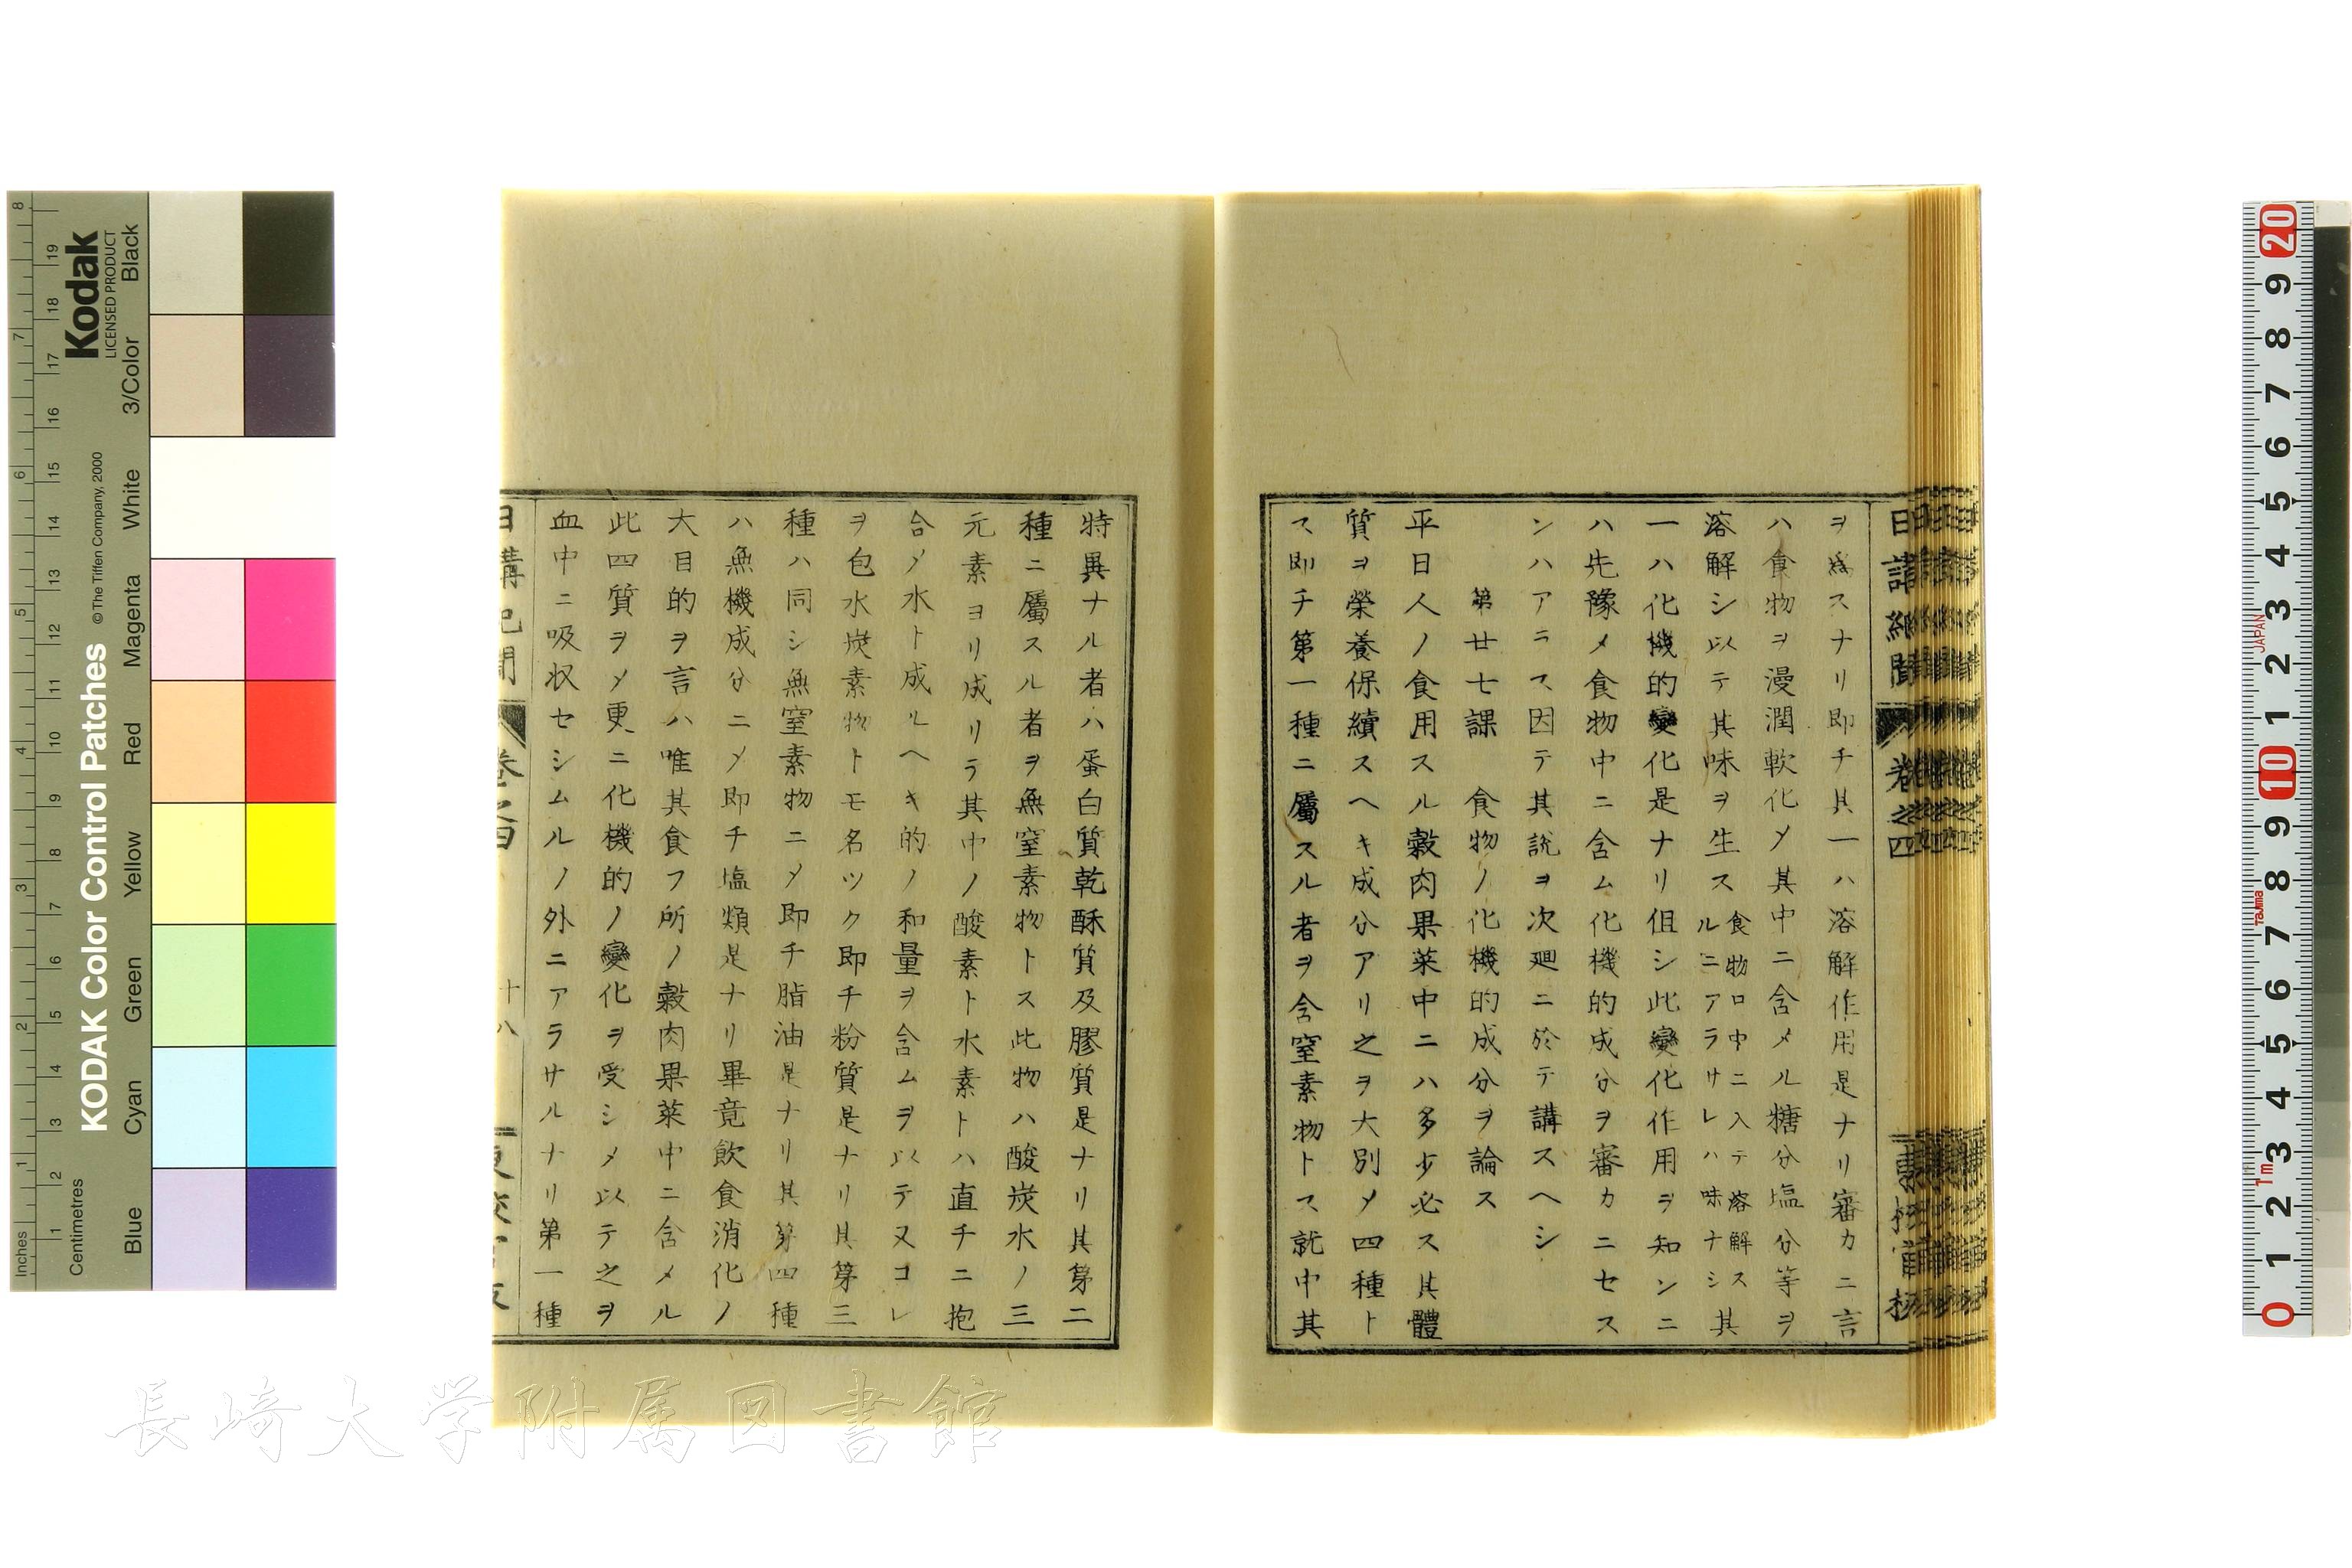 日講紀聞 卷之四 東校官板
ヲ爲スナリ即チ其一ハ溶解作用是ナリ審カニ言
ハ食物ヲ漫潤軟化〆其中ニ含メル糖分塩分等ヲ
溶解シ以テ其味ヲ生ス食物口中ニ入テ溶解スルニアラサレハ味ナシ其
一ハ化機的變化是ナリ伹シ此變化作用ヲ知ンニ
ハ先豫メ食物中ニ含ム化機的成分ヲ審カニセス
ンハアラス因テ其説ヲ次廻ニ於テ講スヘシ
第廿七課 食物ノ化機的成分ヲ論ス
平日人ノ食用スル穀肉果菜中ニハ多少必ス其體
質ヲ榮養保續スヘキ成分アリ之ヲ大別〆四種ト
ス即チ第一種ニ屬スル者ヲ含窒素物トス就中其
特異ナル者ハ蛋白質乾酥質及膠質是ナリ其第二
種ニ屬スル者ヲ無窒素物トス此物ハ酸炭水ノ三
元素ヨリ成リラ其中ノ酸素ト水素トハ直チニ抱
合〆水ト成ルヘキ的ノ和量ヲ含ムヲ以テ又コレ
ヲ包水炭素物トモ名ツク即チ粉質是ナリ其第三
種ハ同シ無窒素物ニ〆即チ脂油是ナリ其第四種
ハ無機成分ニ〆即チ塩類是ナリ畢竟飲食消化ノ
大目的ヲ言ハ唯其食フ所ノ穀肉果菜中ニ含メル
此四質ヲ〆更ニ化機的ノ變化ヲ受シメ以テ之ヲ
血中ニ吸収セシムルノ外ニアラサルナリ第一種
日講紀聞 卷之四 十八
長崎大学附属図書館
KODAK Color Control Patches
© The Tiffen Company, 2000
Kodak
LICENSED PRODUCT
Inches
Centimetres
Blue Cyan Green Yellow Red Magenta White 3/Color Black
1 2 3 4 5 6 7 8
1 2 3 4 5 6 7 8 9 10 11 12 13 14 15 16 17 18 19
0 1 2 3 4 5 6 7 8 9 10 1 2 3 4 5 6 7 8 9 20
1m Tajima JAPAN